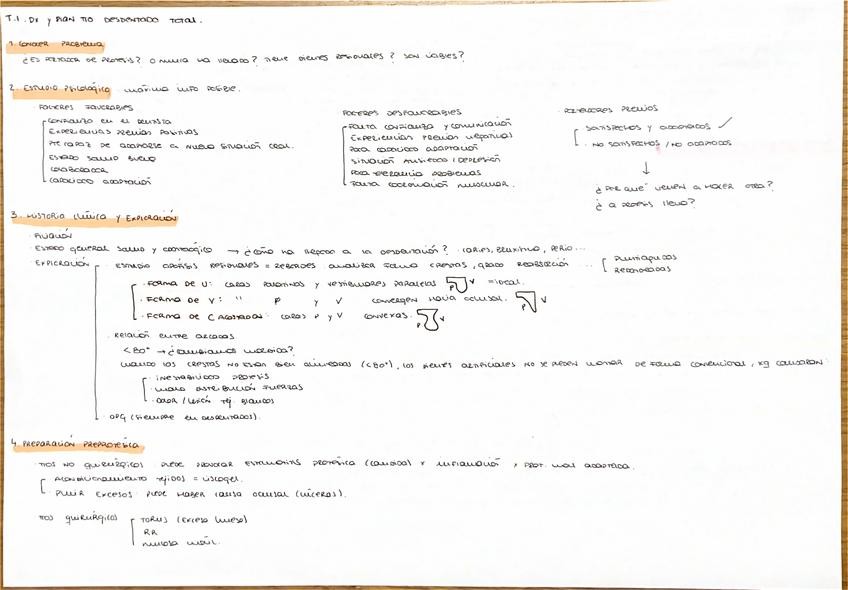 T.1. Dx y PLAN TTO DESDENTADO TOTAL.
1. CONOCER PROBLEMA
¿ES PORTADOR DE PRÓTESIS? O NUNCA HA LLEVADO? TIENE DIENTES RESIDUALES? SON VIABLES?
2. ESTUDIO PSICOLÓGICO máxima info POSIBLE.
FACTORES FAVORABLES
CONFIANZA EN EL DENTISTA
EXPERIENCIAS PREVIAS POSITIVAS
CAPAZ DE ADAPTARSE A NUEVA SITUACIÓN ORAL.
ESTADO SALUD BUENO
COLABORADOR
CAPACIDAD ADAPTACIÓN
FACTORES DESFAVORABLES
FALTA CONFIANZA Y COMUNICACIÓN
EXPERIENCIAS PREVIAS NEGATIVAS
POCA CAPACIDAD ADAPTACIÓN
SITUACIÓN ANSIEDAD / DEPRESIÓN
POCA TOLERANCIA PROBLEMAS
FALTA COORDINACIÓN MUSCULAR.
PORTADORES PREVIOS
SATISFECHOS Y ADAPTADOS ✓
NO SATISFECHOS / NO ADAPTADOS
↓
¿POR QUÉ VIENEN A HACER OTRA?
¿Q PRÓTESIS LLEVA?
3. HISTORIA CLÍNICA Y EXPLORACIÓN
FILIACIÓN
ESTADO GENERAL SALUD Y ODONTOLÓGICO → ¿CÓMO HA LLEGADO A LA DESDENTACIÓN? CARIES, BRUXISMO, PERIO...
EXPLORACIÓN
ESTUDIO APÓFISIS RESIDUALES = REBORDES ANALIZAR FORMA CRESTAS, GRADO REABSORCIÓN ...
PUNTIAGUDAS
REDONDEADAS
FORMA DE U: CARAS PALATINAS Y VESTIBULARES PARALELAS P V = IDEAL.
FORMA DE V: " P Y V CONVERGEN HACIA OCLUSAL. P V
FORMA DE C AGOSTADA: CARAS P Y V CONVEXAS. P V
RELACIÓN ENTRE ARCADAS
<80° → ¿CAMBIAMOS MORDIDA?
CUANDO LAS CRESTAS NO ESTÁN BIEN ALINEADAS (<80°), LOS DIENTES ARTIFICIALES NO SE PUEDEN MONTAR DE FORMA CONVENCIONAL, XQ CAUSARÍAN:
INESTABILIDAD PRÓTESIS
MALA DISTRIBUCIÓN FUERZAS
DOLOR / LESIÓN TEJ. BLANDOS
OPG (SIEMPRE EN DESDENTADOS).
4. PREPARACIÓN PREPROTÉSICA
TTOS NO QUIRÚRGICOS PUEDE PROVOCAR ESTOMATITIS PROTÉSICA (CANDIDA) X INFLAMACIÓN X PRÓT. MAL ADAPTADA.
ACONDICIONAMIENTO TEJIDOS = VISCOGEL.
PULIR EXCESOS PUEDE HABER CAUSA OCLUSAL (ÚLCERAS).
TTOS QUIRÚRGICOS
TORUS (EXCESO HUESO)
RR
MUCOSA MÓVIL.